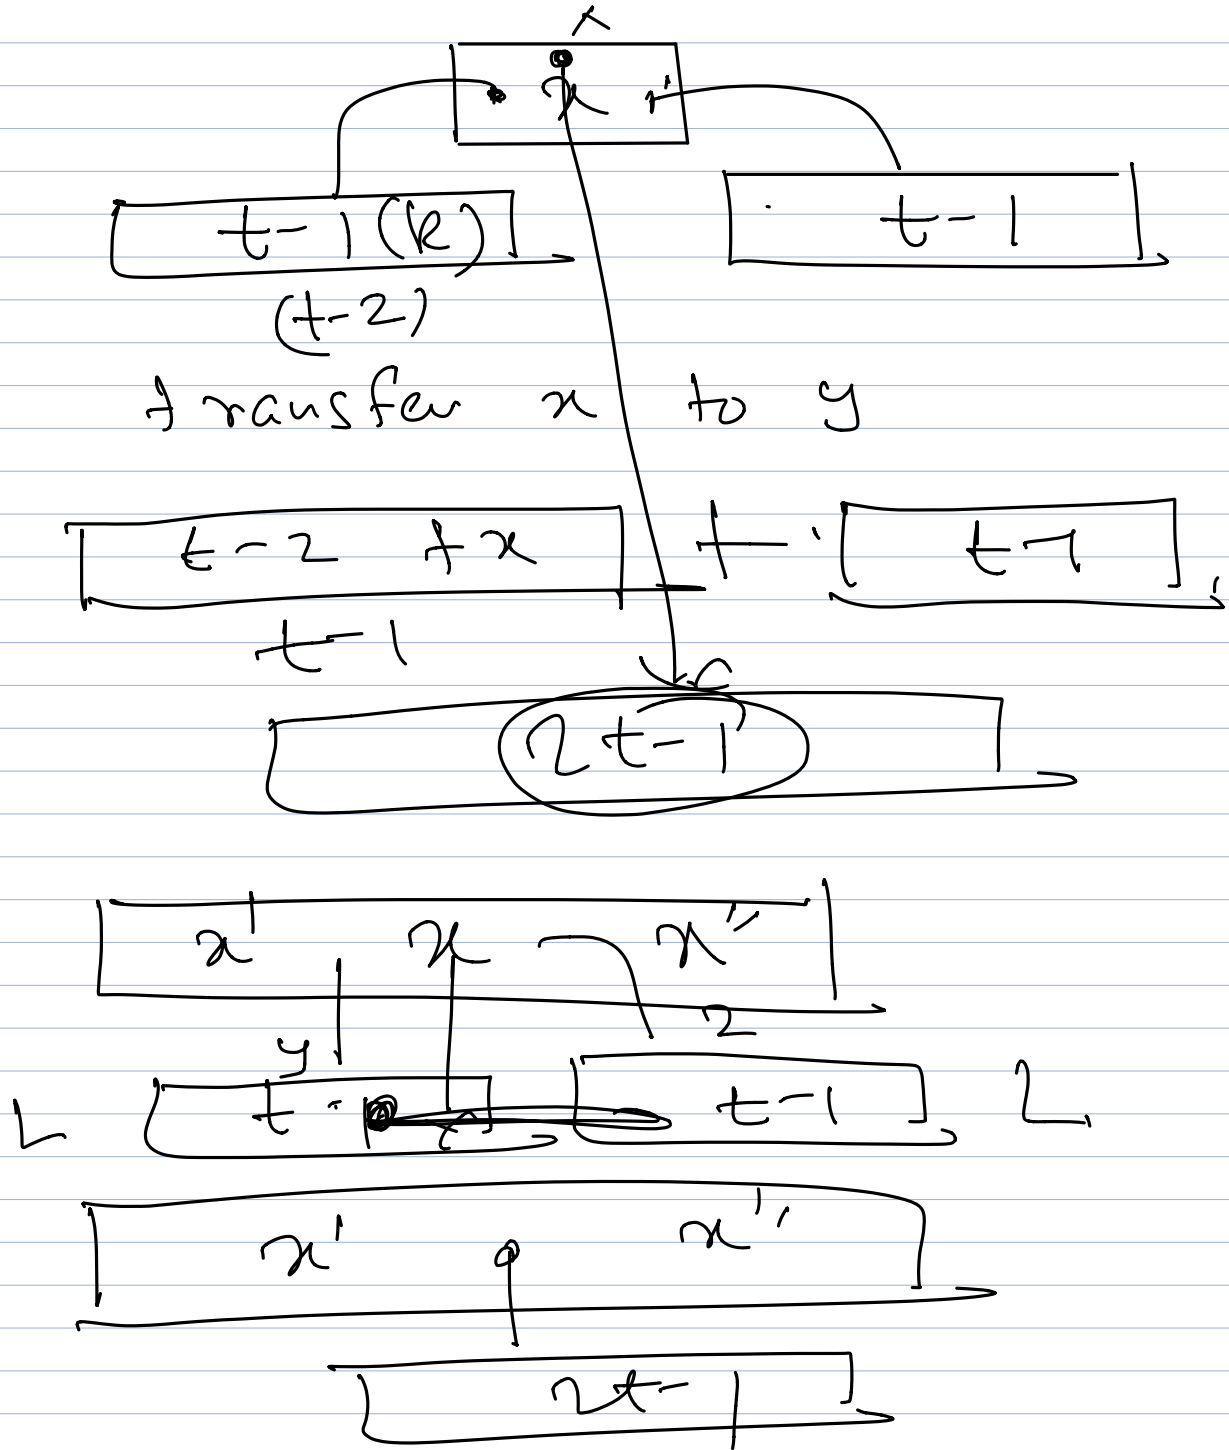 x
t-1(k) t-1
(t-2)
transfer x to y
t-2 +x + t-1
t-1
2t-1
x' x x''
y
L t-1 t-1 2
x' x''
2t-1